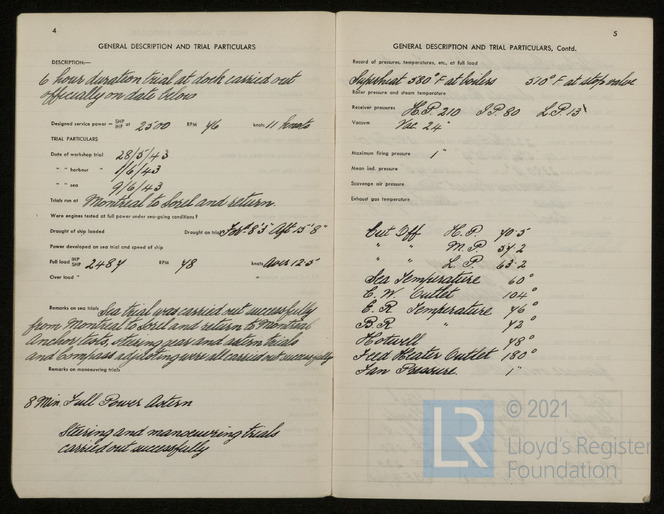 4
GENERAL DESCRIPTION AND TRIAL PARTICULARS
DESCRIPTION:—
6 hour duration trial at dock carried out
officially on date below
Designed service power — SHP IHP at 2500 RPM 76 knots 11 knots
TRIAL PARTICULARS
Date of workshop trial 28/5/43
" " harbour " 1/6/43
" " sea 9/6/43
Trials run at Montreal to Sorel and return.
Were engines tested at full power under sea-going conditions?
Draught of ship loaded Draught on trial For'd 8'3" Aft 15'8"
Power developed on sea trial and speed of ship
Full load SHP IHP 2487 RPM 78 knots Over 12.5
Over load " " "
Remarks on sea trials Sea trial was carried out successfully
from Montreal to Sorel and return to Montreal
Anchor tests, Steering gear and astern trials
and Compass adjusting were all carried out successfully
Remarks on manœuvring trials
8 Min Full Power Astern
Steering and manoeuvering trials
carried out successfully
5
GENERAL DESCRIPTION AND TRIAL PARTICULARS, Contd.
Record of pressures, temperatures, etc., at full load
Superheat 580°F at boilers 510°F at stop valve
Boiler pressure and steam temperature
Receiver pressures H.P. 210 I.P. 80 L.P. 13
Vacuum Vac 24"
Maximum firing pressure 1"
Mean ind. pressure
Scavenge air pressure
Exhaust gas temperature
Cut Off H.P. 70.5
" " M.P. 57.2
" " L.P. 63.2
Sea Temperature 60°
C.W. Outlet 104°
E.R. Temperature 76°
B.R. " 72°
Hotwell 98°
Feed Heater Outlet 180°
Fan Pressure 1"
LR
© 2021
Lloyd's Register
Foundation